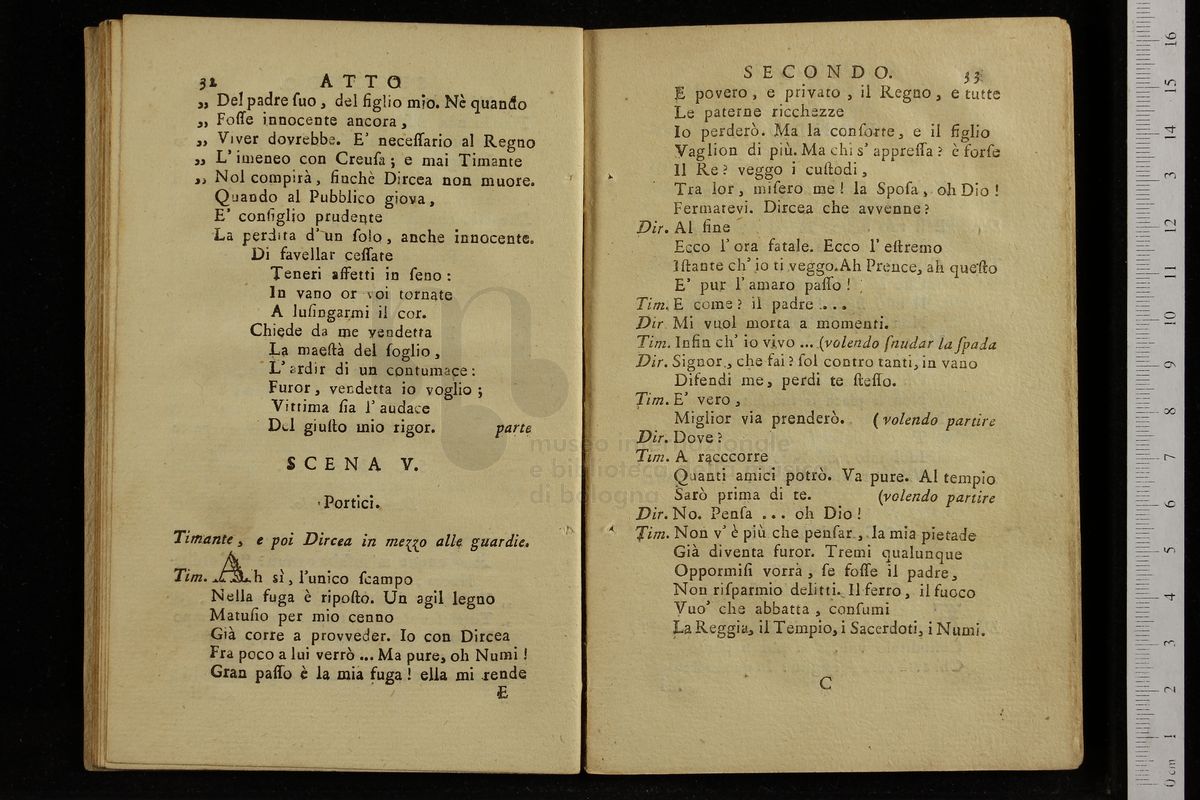 32 ATTO
„ Del padre ſuo, del figlio mio. Nè quando
„ Foſſe innocente ancora,
„ Viver dovrebbe. E' neceſſario al Regno
„ L'imeneo con Creuſa; e mai Timante
„ Nol compirà, finchè Dircea non muore.
Quando al Pubblico giova,
E' conſiglio prudente
La perdita d'un ſolo, anche innocente.
Di favellar ceſſate
Teneri affetti in ſeno:
In vano or voi tornate
A luſingarmi il cor.
Chiede da me vendetta
La maeſtà del ſoglio,
L'ardir di un contumace:
Furor, vendetta io voglio;
Vittima ſia l'audace
Del giuſto mio rigor. parte
SCENA V.
Portici.
Timante, e poi Dircea in mezzo alle guardie.
Tim. Ah sì, l'unico ſcampo
Nella fuga è ripoſto. Un agil legno
Matuſio per mio cenno
Già corre a provveder. Io con Dircea
Fra poco a lui verrò ... Ma pure, oh Numi!
Gran paſſo è la mia fuga! ella mi rende
E
SECONDO. 33
E povero, e privato, il Regno, e tutte
Le paterne ricchezze
Io perderò. Ma la conſorte, e il figlio
Vaglion di più. Ma chi s'appreſſa? è forſe
Il Re? veggo i cuſtodi,
Tra lor, miſero me! la Spoſa, oh Dio!
Fermatevi. Dircea che avvenne?
Dir. Al fine
Ecco l'ora fatale. Ecco l'eſtremo
Iſtante ch'io ti veggo. Ah Prence, ah queſto
E' pur l'amaro paſſo!
Tim. E come? il padre ....
Dir Mi vuol morta a momenti.
Tim. Infin ch'io vivo ... (volendo ſnudar la ſpada
Dir. Signor, che fai? ſol contro tanti, in vano
Difendi me, perdi te ſteſſo.
Tim. E' vero,
Miglior via prenderò. (volendo partire
Dir. Dove?
Tim. A racccorre
Quanti amici potrò. Va pure. Al tempio
Sarò prima di te. (volendo partire
Dir. No. Penſa ... oh Dio!
Tim. Non v'è più che penſar, la mia pietade
Già diventa furor. Tremi qualunque
Oppormiſi vorrà, ſe foſſe il padre,
Non riſparmio delitti. Il ferro, il fuoco
Vuo' che abbatta, conſumi
La Reggia, il Tempio, i Sacerdoti, i Numi.
C
0 cm 1 2 3 4 5 6 7 8 9 10 11 12 13 14 15 16